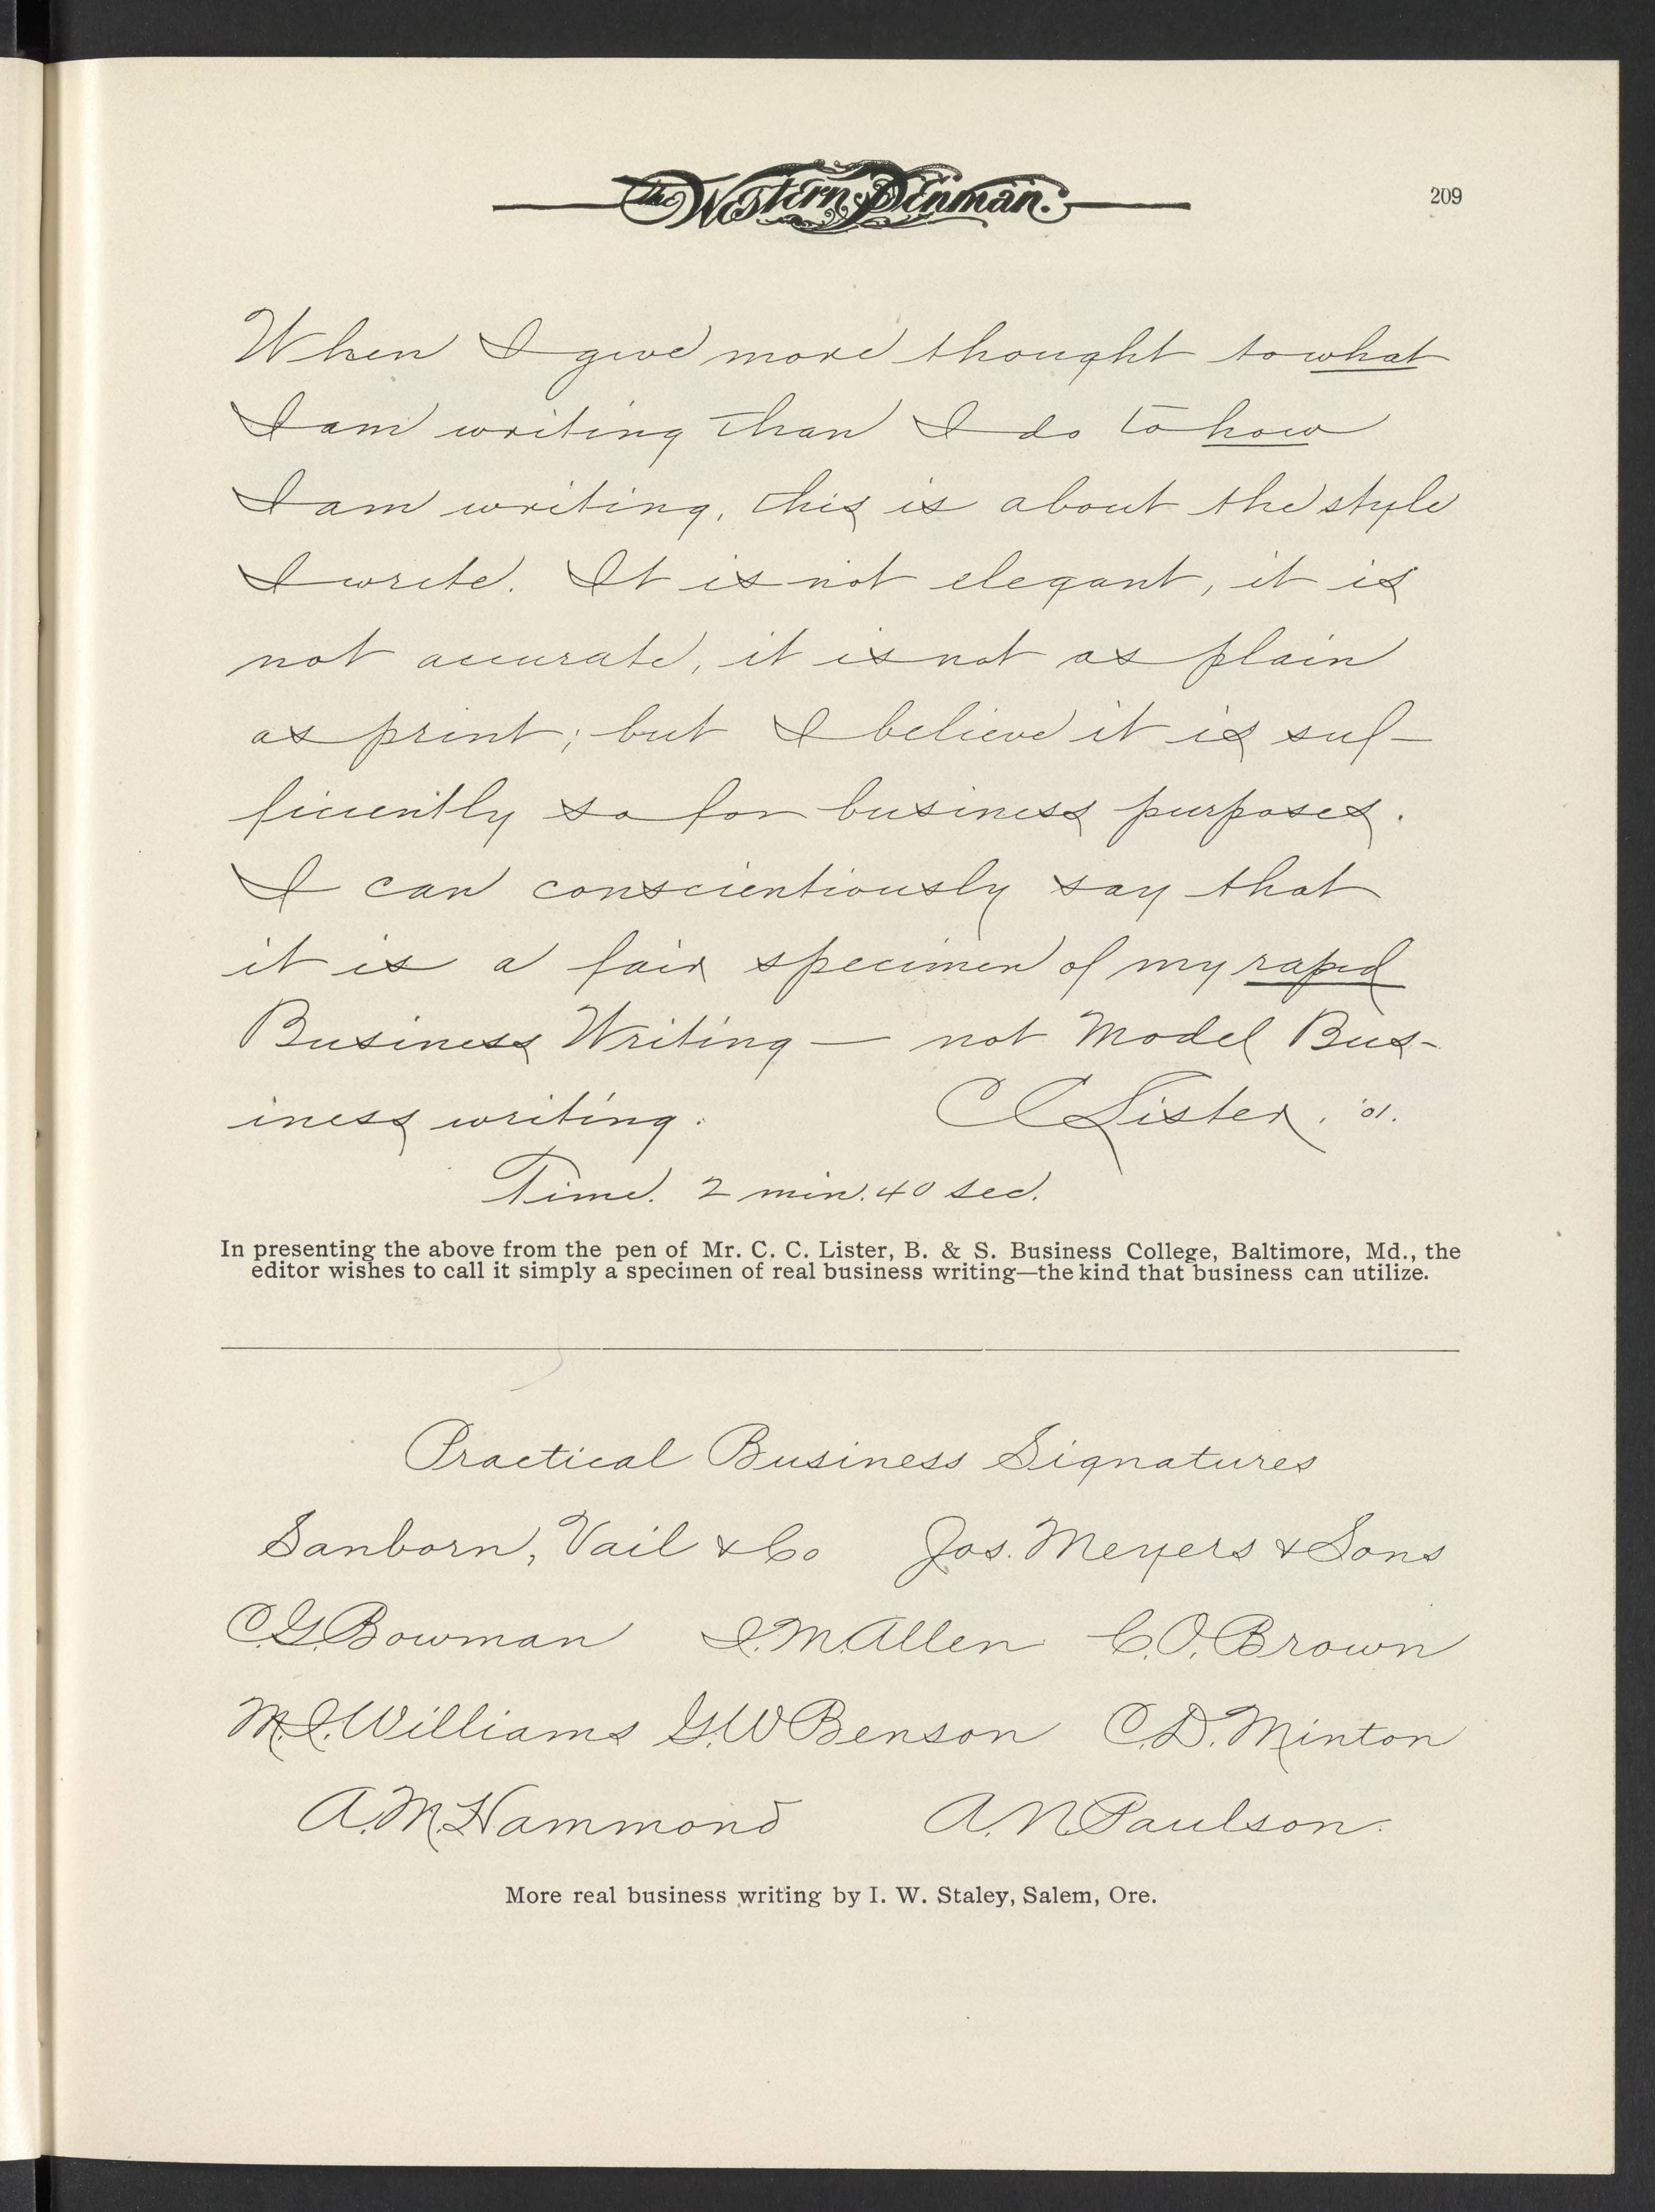 The Western Penman.
209
When I give more thought to what
I am writing than I do to how
I am writing, this is about the style
I write. It is not elegant, it is
not accurate, it is not as plain
as print; but I believe it is suf-
ficiently so for business purposes.
I can conscientiously say that
it is a fair specimen of my rapid
Business Writing — not Model Bus-
iness writing.
C C Lister, '01.
Time. 2 min. 40 sec.
In presenting the above from the pen of Mr. C. C. Lister, B. & S. Business College, Baltimore, Md., the
editor wishes to call it simply a specimen of real business writing—the kind that business can utilize.
Practical Business Signatures
Sanborn, Vail & Co Jos. Meyers & Sons
C.G. Bowman I.M. Allen C.O. Brown
M.I. Williams G.W Benson C.D. Minton
A.M. Hammond A.N. Paulson.
More real business writing by I. W. Staley, Salem, Ore.